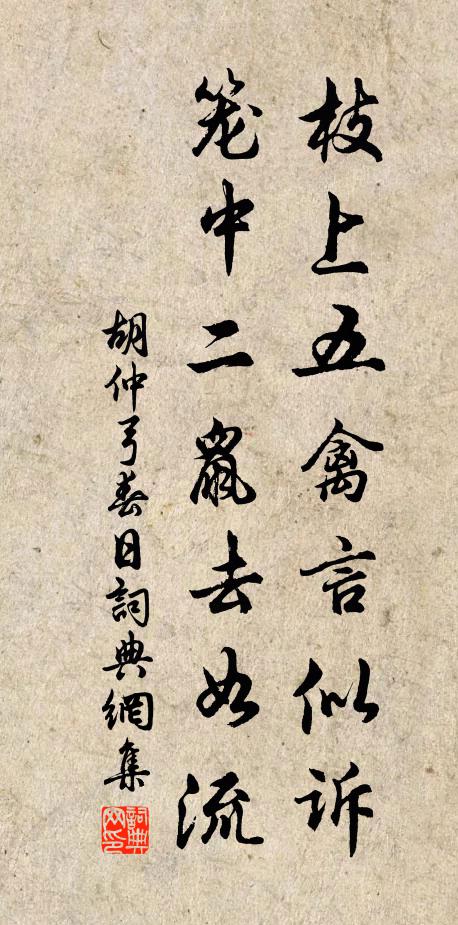 枝上五禽言似诉
笼中二鼠去如流
胡仲弓春日詞典網集
詞典網印